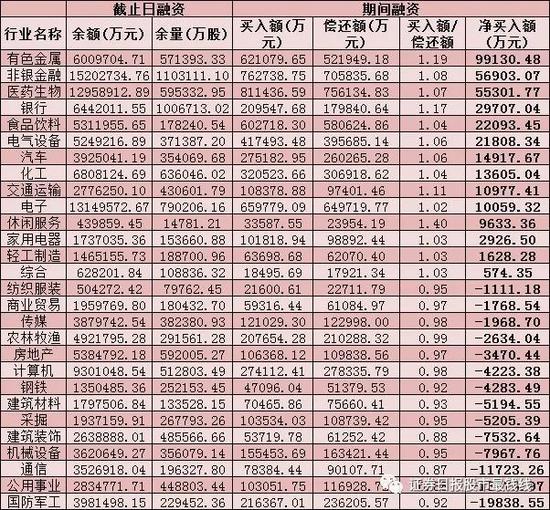 截止日融资 期间融资
行业名称 余额(万元) 余量(万股) 买入额(万元) 偿还额(万元) 买入额/偿还额 净买入额(万元)
有色金属 6009704.71 571393.33 621079.65 521949.18 1.19 99130.48
非银金融 15202734.76 1103111.10 762738.75 705835.68 1.08 56903.07
医药生物 12958912.89 595332.95 811436.59 756134.83 1.07 55301.77
银行 6442011.55 1006713.02 209547.68 179840.64 1.17 29707.04
食品饮料 5311955.65 178240.54 602718.30 580624.86 1.04 22093.45
电气设备 5249216.89 371387.20 417493.48 395685.14 1.06 21808.34
汽车 3925041.19 354069.68 275182.95 260265.28 1.06 14917.67
化工 6808124.69 636046.02 320523.66 306918.62 1.04 13605.04
交通运输 2776250.10 430601.79 108378.88 97401.46 1.11 10977.41
电子 13149572.67 790206.16 659779.09 649719.77 1.02 10059.32
休闲服务 439859.45 14781.21 33587.55 23954.19 1.40 9633.36
家用电器 1737035.36 153660.88 101818.94 98892.44 1.03 2926.50
轻工制造 1465155.73 188700.96 63698.68 62070.40 1.03 1628.28
综合 628201.84 108836.32 18495.69 17921.34 1.03 574.35
纺织服装 504272.42 79762.45 21600.61 22711.79 0.95 -1111.18
商业贸易 1959769.80 180432.70 59316.44 61084.97 0.97 -1768.54
传媒 3879742.54 382380.93 121029.30 122998.00 0.98 -1968.70
农林牧渔 4921795.28 291561.28 207654.28 210288.32 0.99 -2634.04
房地产 5384792.18 592005.27 106368.12 109838.56 0.97 -3470.44
计算机 9301048.54 512803.49 274112.41 278335.79 0.98 -4223.38
钢铁 1350485.36 252153.45 47096.04 51379.53 0.92 -4283.49
建筑材料 1797506.84 133528.15 70465.86 75660.41 0.93 -5194.55
采掘 1937159.91 267793.26 103534.03 108739.42 0.95 -5205.39
建筑装饰 2638888.01 485566.66 53719.78 61252.42 0.88 -7532.64
机械设备 3620649.27 356079.14 155453.69 163421.44 0.95 -7967.76
通信 3526918.04 196327.80 78384.44 90107.71 0.87 -11723.26
公用事业 2834771.71 448803.44 103051.75
国防军工 3981498.15 229452.36 216367.01 236205.57 0.92 -19838.55
证券日报股市最钱线